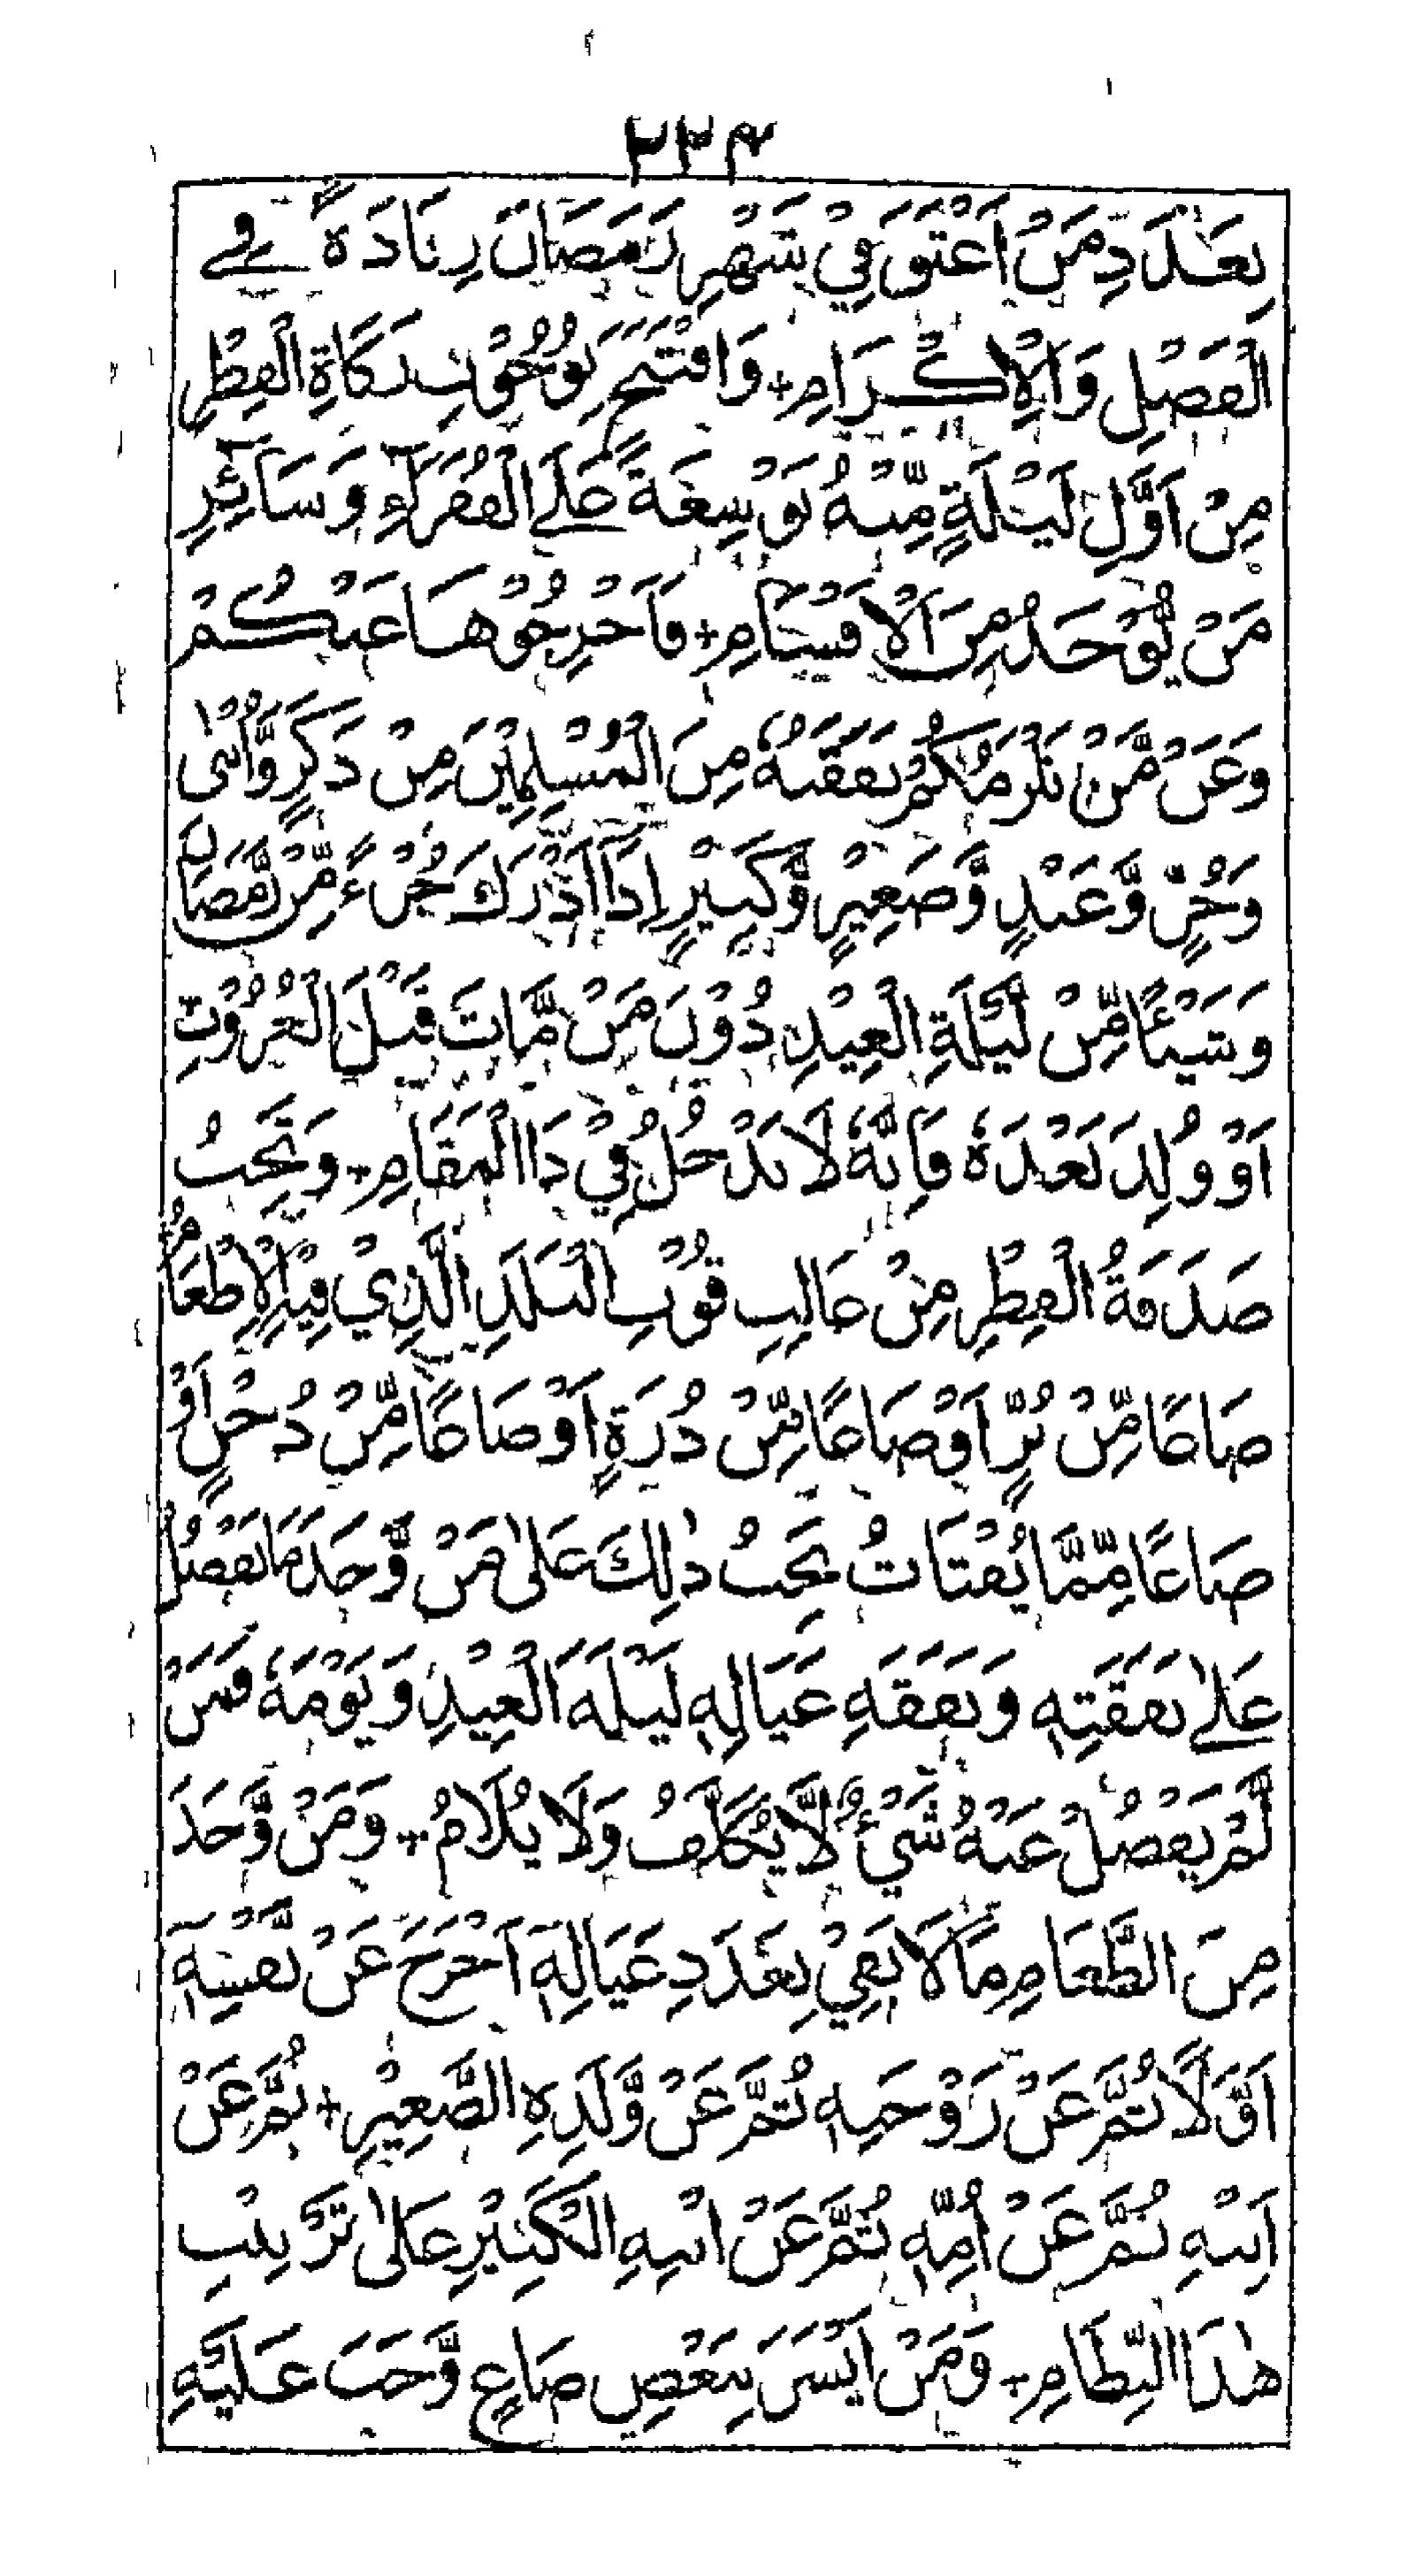 ٢٢٤
بِعَدَدِ مَنْ اَعْتَقَ فِيْ شَهْرِ رَمَضَانَ زِيَادَةً فِے
الْفَضْلِ وَالْاِكْرَامِ + وَافْتَتَحَ بِوُجُوْبِ زَكَاةِ الْفِطْرِ
مِنْ اَوَّلِ لَيْلَةٍ مِّنْهُ تَوْسِعَةً عَلَے الْفُقَرَآءِ وَسَآئِرِ
مَنْ يُّوْجَدُ مِنَ الْاَقْسَامِ + فَاَخْرِجُوْهَا عَنْكُمْ
وَعَنْ مَّنْ تَلْزَمُكُمْ نَفَقَتُهٗ مِنَ الْمُسْلِمِيْنَ مِنْ ذَكَرٍ وَّاُنْثٰى
وَحُرٍّ وَّعَبْدٍ وَّصَغِيْرٍ وَّكَبِيْرٍ اِذَا اَدْرَكَ جُزْءً مِّنْ رَّمَضَانَ
وَشَيْئًا مِّنْ لَّيْلَةِ الْعِيْدِ دُوْنَ مَنْ مَّاتَ قَبْلَ الْغُرُوْبِ
اَوْ وُلِدَ بَعْدَهٗ فَاِنَّهٗ لَا يَدْخُلُ فِيْ ذَا الْمَقَامِ + وَتَجِبُ
صَدَقَةُ الْفِطْرِ مِنْ غَالِبِ قُوْتِ الْبَلَدِ الَّذِيْ فِيْهِ الْاِطْعَامُ
صَاعًا مِّنْ بُرٍّ اَوْ صَاعًا مِّنْ ذُرَةٍ اَوْ صَاعًا مِّنْ دُخْنٍ اَوْ
صَاعًا مِّمَّا يُقْتَاتُ تَجِبُ ذٰلِكَ عَلٰى مَنْ وَّجَدَ مَا يَفْضُلُ
عَلٰے نَفَقَتِهٖ وَنَفَقَةِ عَيَالِهٖ لَيْلَةَ الْعِيْدِ وَيَوْمَهٗ فَمَنْ
لَّمْ يَفْضُلْ عَنْهُ شَيْءٌ لَّا يُكَلَّفُ وَلَا يُلَامُ + وَمَنْ وَّجَدَ
مِنَ الطَّعَامِ مَا لَا يَفِيْ بِعَدَدِ عَيَالِهٖٓ اَخْرَجَ عَنْ نَّفْسِهٖٓ
اَوَّلًا ثُمَّ عَنْ زَوْجَتِهٖ ثُمَّ عَنْ وَّلَدِهِ الصَّغِيْرِ + ثُمَّ عَنْ
اَبِيْهِ ثُمَّ عَنْ اُمِّهٖ ثُمَّ عَنْ ابْنِهِ الْكَبِيْرِ عَلٰى تَرْتِيْبِ
هٰذَا النِّظَامِ + وَمَنْ اَيْسَرَ بِبَعْضِ صَاعٍ وَّجَبَ عَلَيْهِ